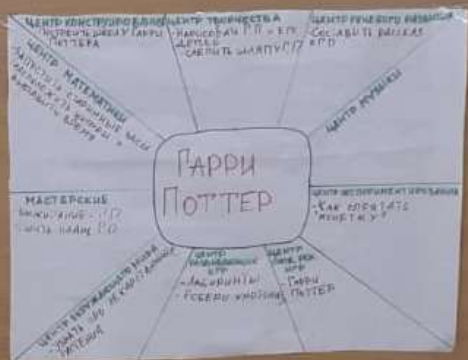 ЦЕНТР КОНСТРУИРОВАНИЯ
ПОСТРОИТЬ ШКОЛУ ГАРРИ
ПОТТЕРА
ЦЕНТР ТВОРЧЕСТВА
НАРИСОВАТЬ ГП и ЕГО
ДРУЗЕЙ
СЛЕПИТЬ ШЛЯПУ ГП
ЦЕНТР РЕЧЕВОГО РАЗВИТИЯ
СОСТАВИТЬ РАССКАЗ
О ГП
ЦЕНТР МАТЕМАТИКИ
ЗАПУСТИТЬ СТАРИННЫЕ ЧАСЫ
ЦИФРЫ и
ВРЕМЯ
ЦЕНТР МУЗЫКИ
ГАРРИ
ПОТТЕР
МАСТЕРСКИЕ
ВЫЖИГАНИЕ ГП
ПЛАЩ ГП
ЦЕНТР ЭКСПЕРИМЕНТИРОВАНИЯ
- КАК СПРЯТАТЬ
МОНЕТКУ?
ЦЕНТР ОКРУЖАЮЩЕГО МИРА
- УЗНАТЬ ПРО ЛЕКАРСТВЕННЫЕ
РАСТЕНИЯ
ЦЕНТР
РАЗВИВАЮЩИХ
ИГР
- ЛАБИРИНТЫ
- СОБЕРИ КАРТИНКУ
ЦЕНТР
ИГР
- ГАРРИ
ПОТТЕР